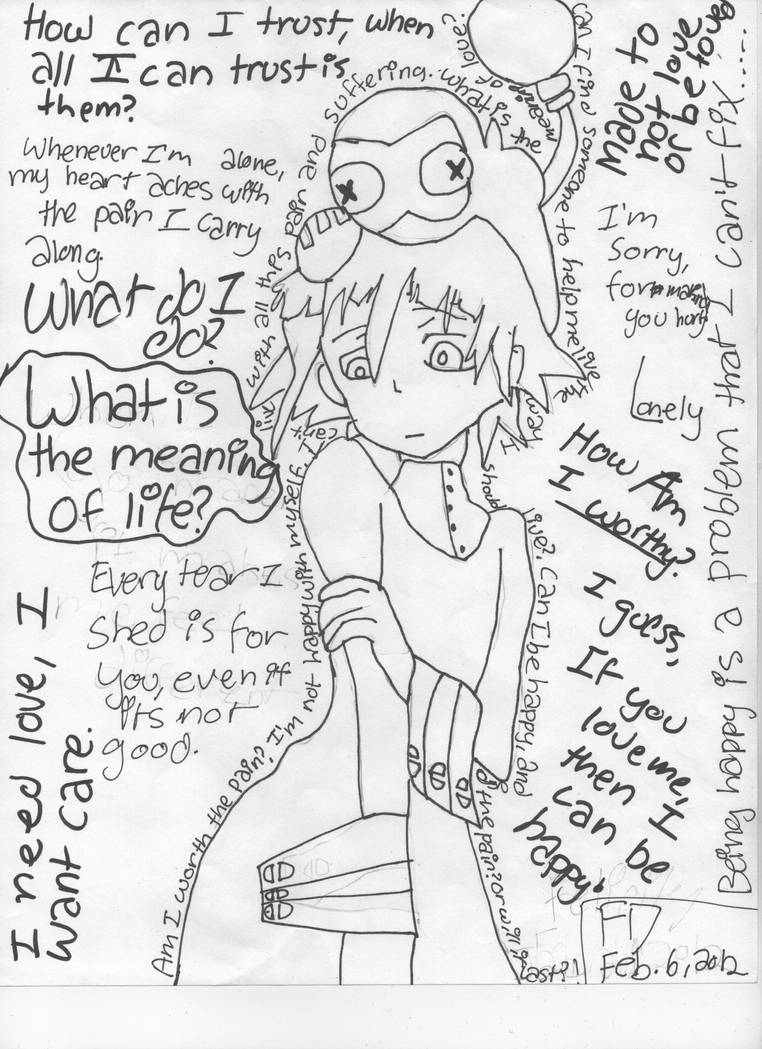 How can I trust, when
all I can trust is
them?
Whenever I'm alone,
my heart aches with
the pain I carry
along.
What do I
do?
What is
the meaning
of life?
Every tear I
shed is for
you, even if
its not
good.
I need love, I
want care.
Am I worth the pain? I'm not happy with myself. I can't
live with all this pain and suffering. What is the meaning of love?
Can I find someone to help me live the way I should live?. Can I be happy, and
of the pain? or will it last?!
made to
not love
or be loved
I'm
sorry,
for making
you hurt
Lonely
How Am
I worthy?
I guess,
If you
love me,
then I
can be
happy.
Being happy is a problem that I can't fix.....
FD
Feb. 6, 2012